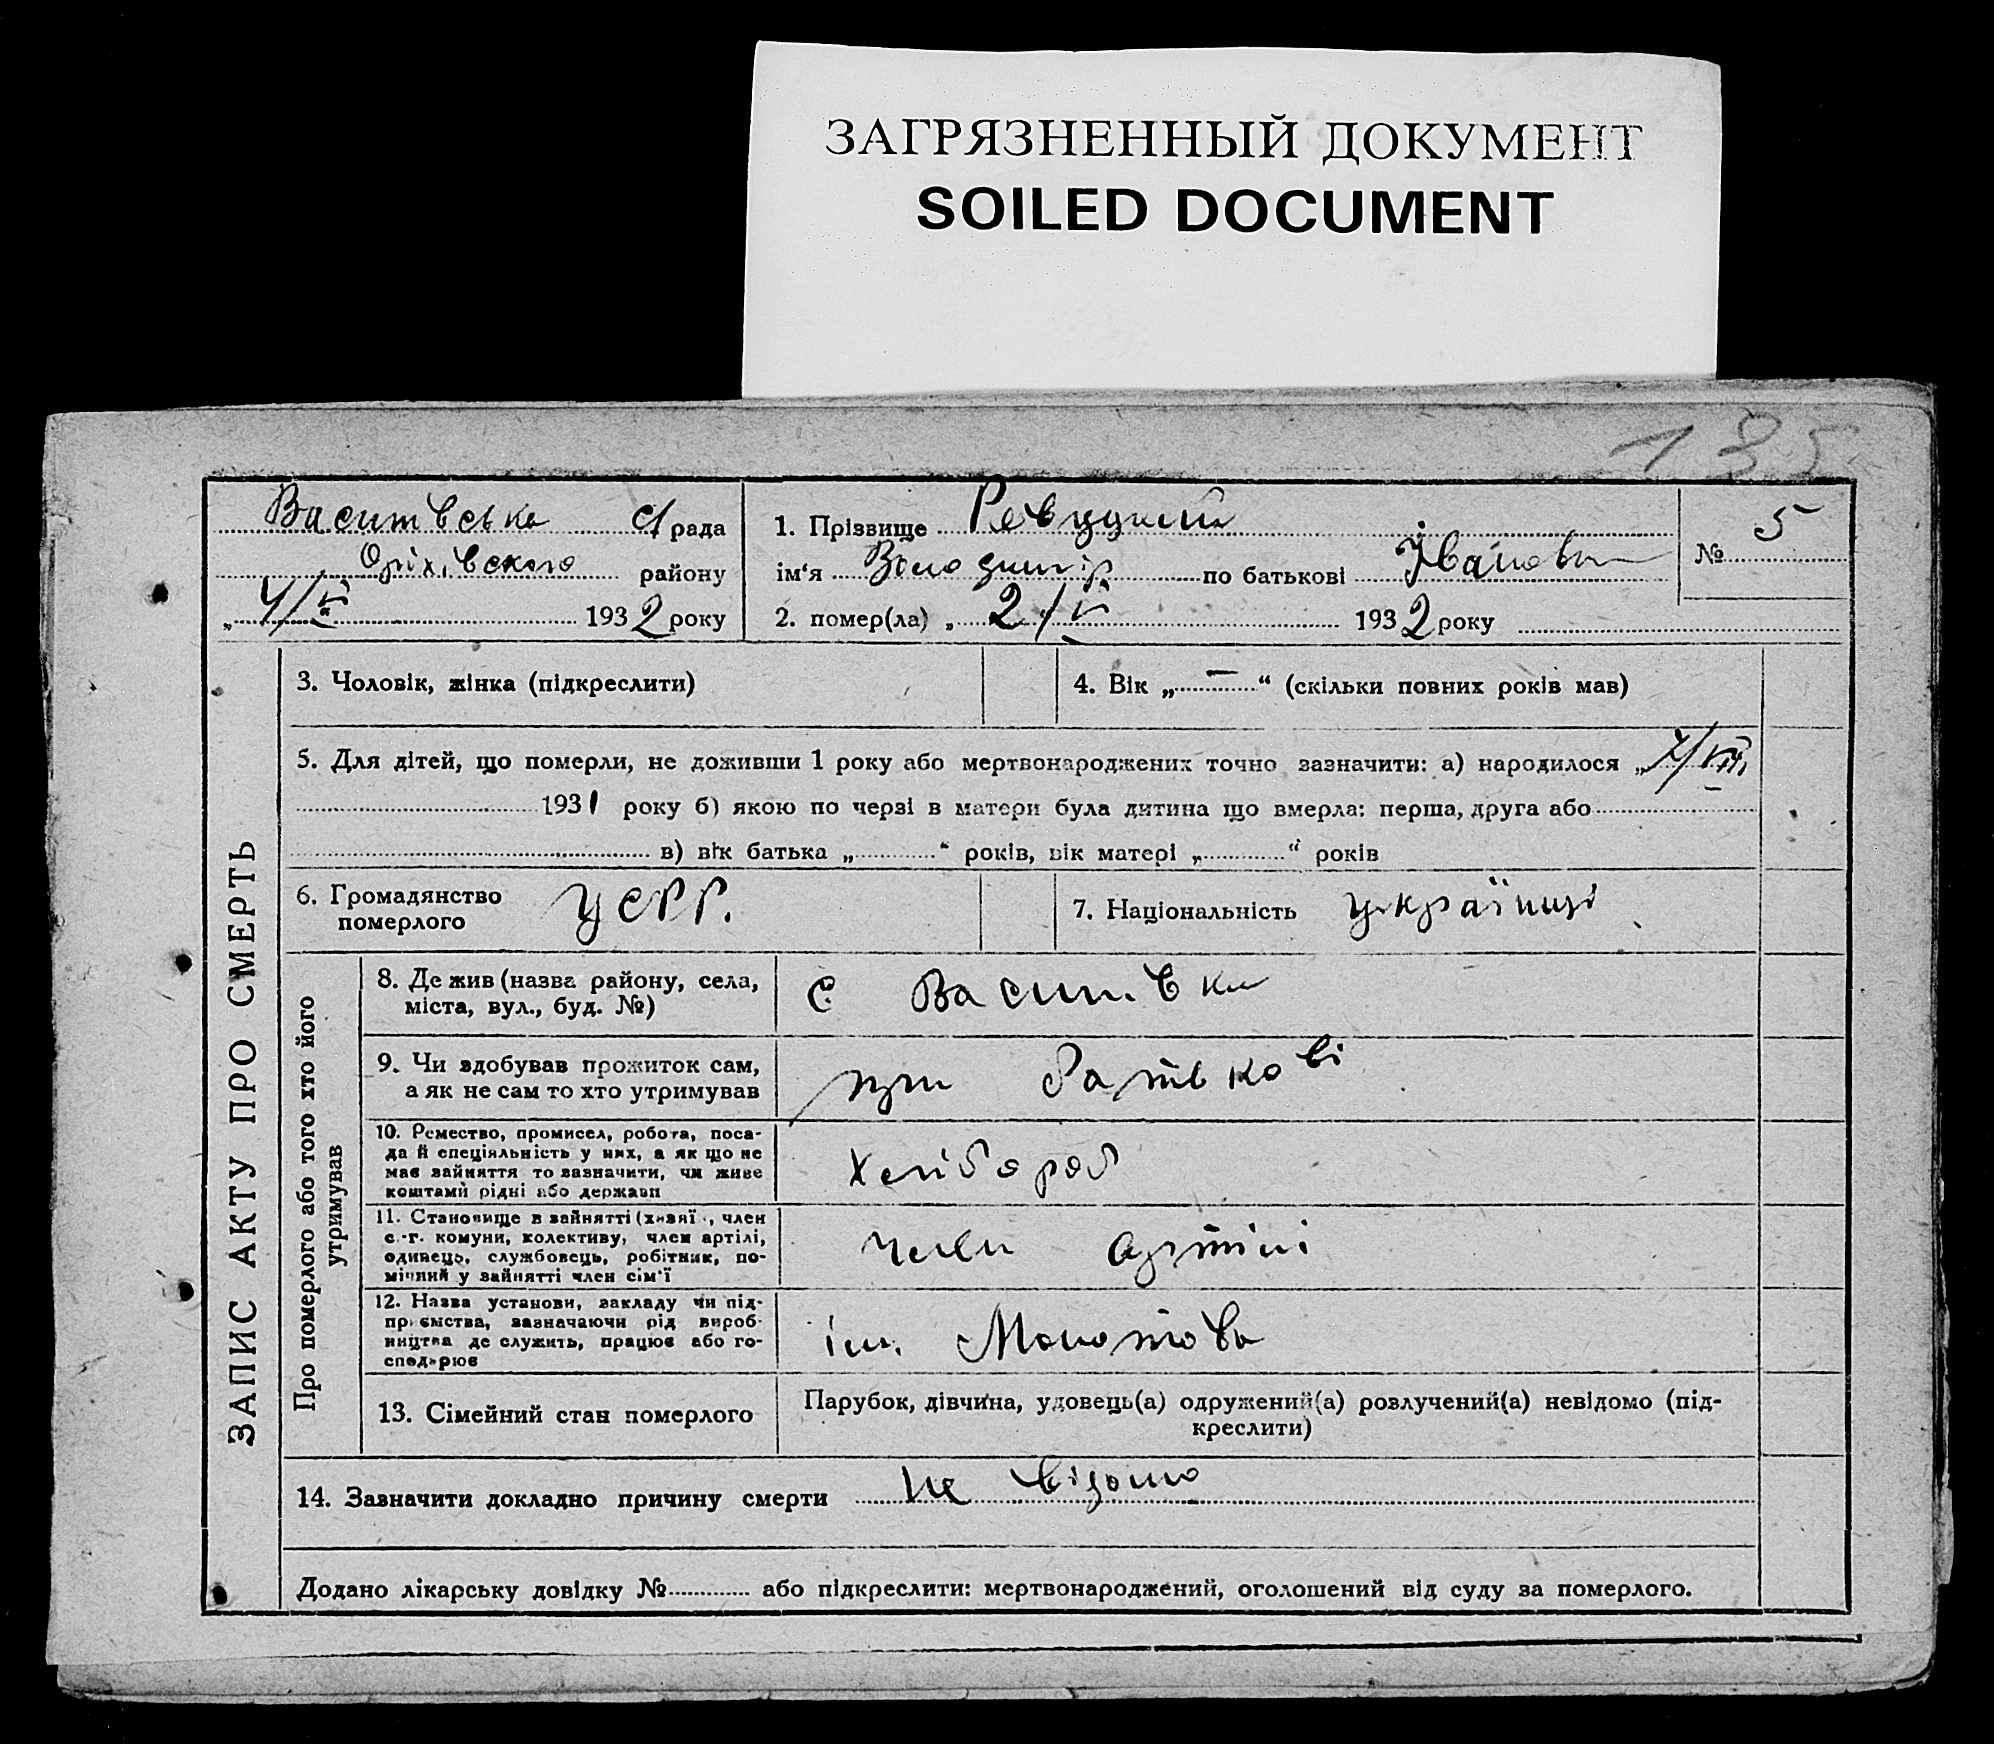 ЗАГРЯЗНЕННЫЙ ДОКУМЕНТ
SOILED DOCUMENT
135
Василівська с/рада
Оріхівського району
„ 4/V 1932 року
1. Прізвище Ревуцкий
ім'я Володимір по батькові Іванович
№ 5
2. помер(ла) „ 2/V 1932 року
ЗАПИС АКТУ ПРО СМЕРТЬ
3. Чоловік, жінка (підкреслити)
4. Вік „ — “ (скільки повних років мав)
5. Для дітей, що померли, не доживши 1 року або мертвонароджених точно зазначити: а) народилося „ 7/VIII
1931 року б) якою по черзі в матери була дитина що вмерла: перша, друга або
в) вік батька „ “ років, вік матері „ “ років
6. Громадянство померлого УСРР.
7. Національність українці
Про померлого або того хто його утримував
8. Де жив (назва району, села,
міста, вул., буд. №)
с Василівка
9. Чи здобував прожиток сам,
а як не сам то хто утримував
при батькові
10. Ремество, промисел, робота, поса-
да й спеціяльність у них, а як що не
має зайняття то зазначити, чи живе
коштами рідні або держави
Хлібороб
11. Становище в зайнятті (хазяї , член
с.-г. комуни, колективу, член артілі,
одинець, службовець, робітник, по-
мічний у зайнятті член сім'ї
член артілі
12. Назва установи, закладу чи під-
приємства, зазначаючи рід вироб-
ництва де служить, працює або го-
сподарює
ім. Молотова
13. Сімейний стан померлого
Парубок, дівчина, удовець(а) одружений(а) розлучений(а) невідомо (під-
креслити)
14. Зазначити докладно причину смерти не відомо
Додано лікарську довідку № або підкреслити: мертвонароджений, оголошений від суду за померлого.